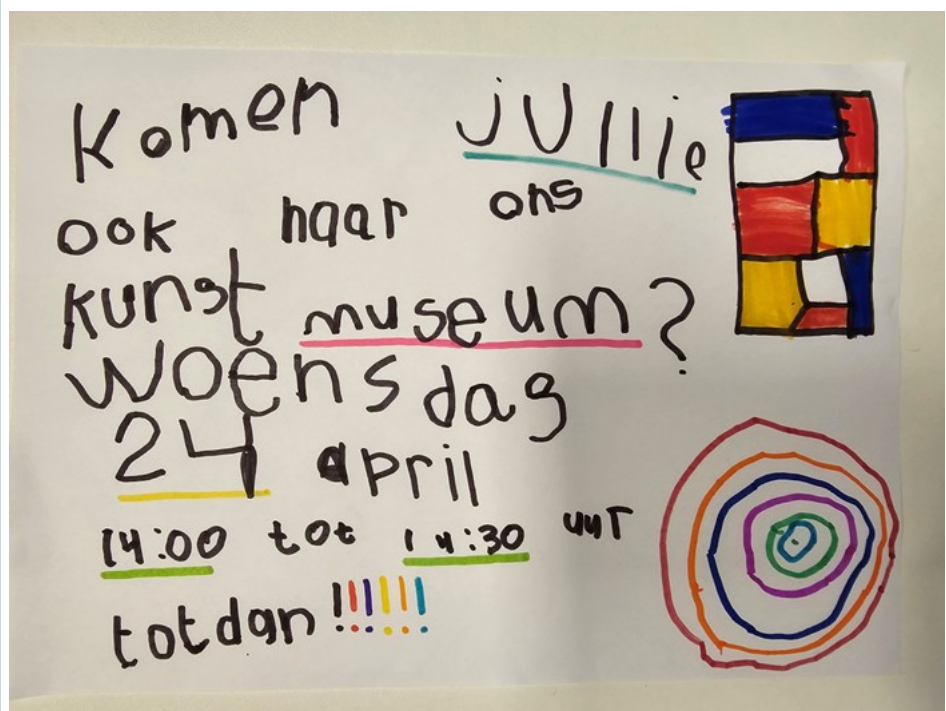 Komen jullie
ook naar ons
kunst museum?
woensdag
24 april
14:00 tot 14:30 uur
tot dan !!!!!!!